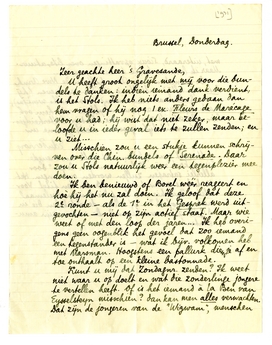 [34]
Brussel, Donderdag.
Zeer geachte heer 's Gravesande,
U heeft groot ongelijk met mij voor die bun-
dels te danken: indien iemand dank verdient,
is 't Stols. Ik heb niets anders gedaan dan
hem vragen of hij nog 1 ex. Fleurs de Marécage
voor u had; hij wist dat niet zeker, maar be-
loofde u in ieder geval iets te zullen zenden; en
u ziet...
Misschien zou u een stukje kunnen schrij-
ven over die Chin. bundel of Serenade. Daar
zou Stols natuurlijk weer een tegenplezier mee
doen.
Ik ben benieuwd of Borel weer reageert en
hoe hij het nu zal doen. Ik geloof dat deze
2e ronde - als de 1e in Den Gulden Winckel werd uit-
gevochten - niet op zijn actief staat. Maar wie
weet of met den loop der jaren... Ik heb overi-
gens geen oogenblik het gevoel dat zoo iemand
een tegenstander is - wat ik bijv. volkomen heb
met Marsman. Hoogstens een
en toe onthaalt op een kleine bastonnade.
Kunt u mij dat Zondagnr. zenden? Ik weet
niet waar u op doelt en wat die zonderlinge jongere
te vertellen heeft. Of is het iemand à la Ben van
Eysselsteijn misschien? dan kan men alles verwachten.
Dat zijn de jongeren van de "Wigwam", menschen